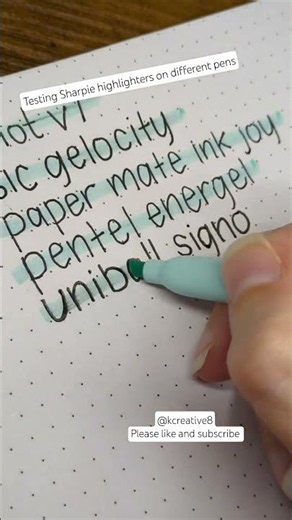 Testing Sharpie highlighters on different pens
gelocity
paper mate ink joy
pentel energel
uniball signo
@kcreative8
Please like and subscribe